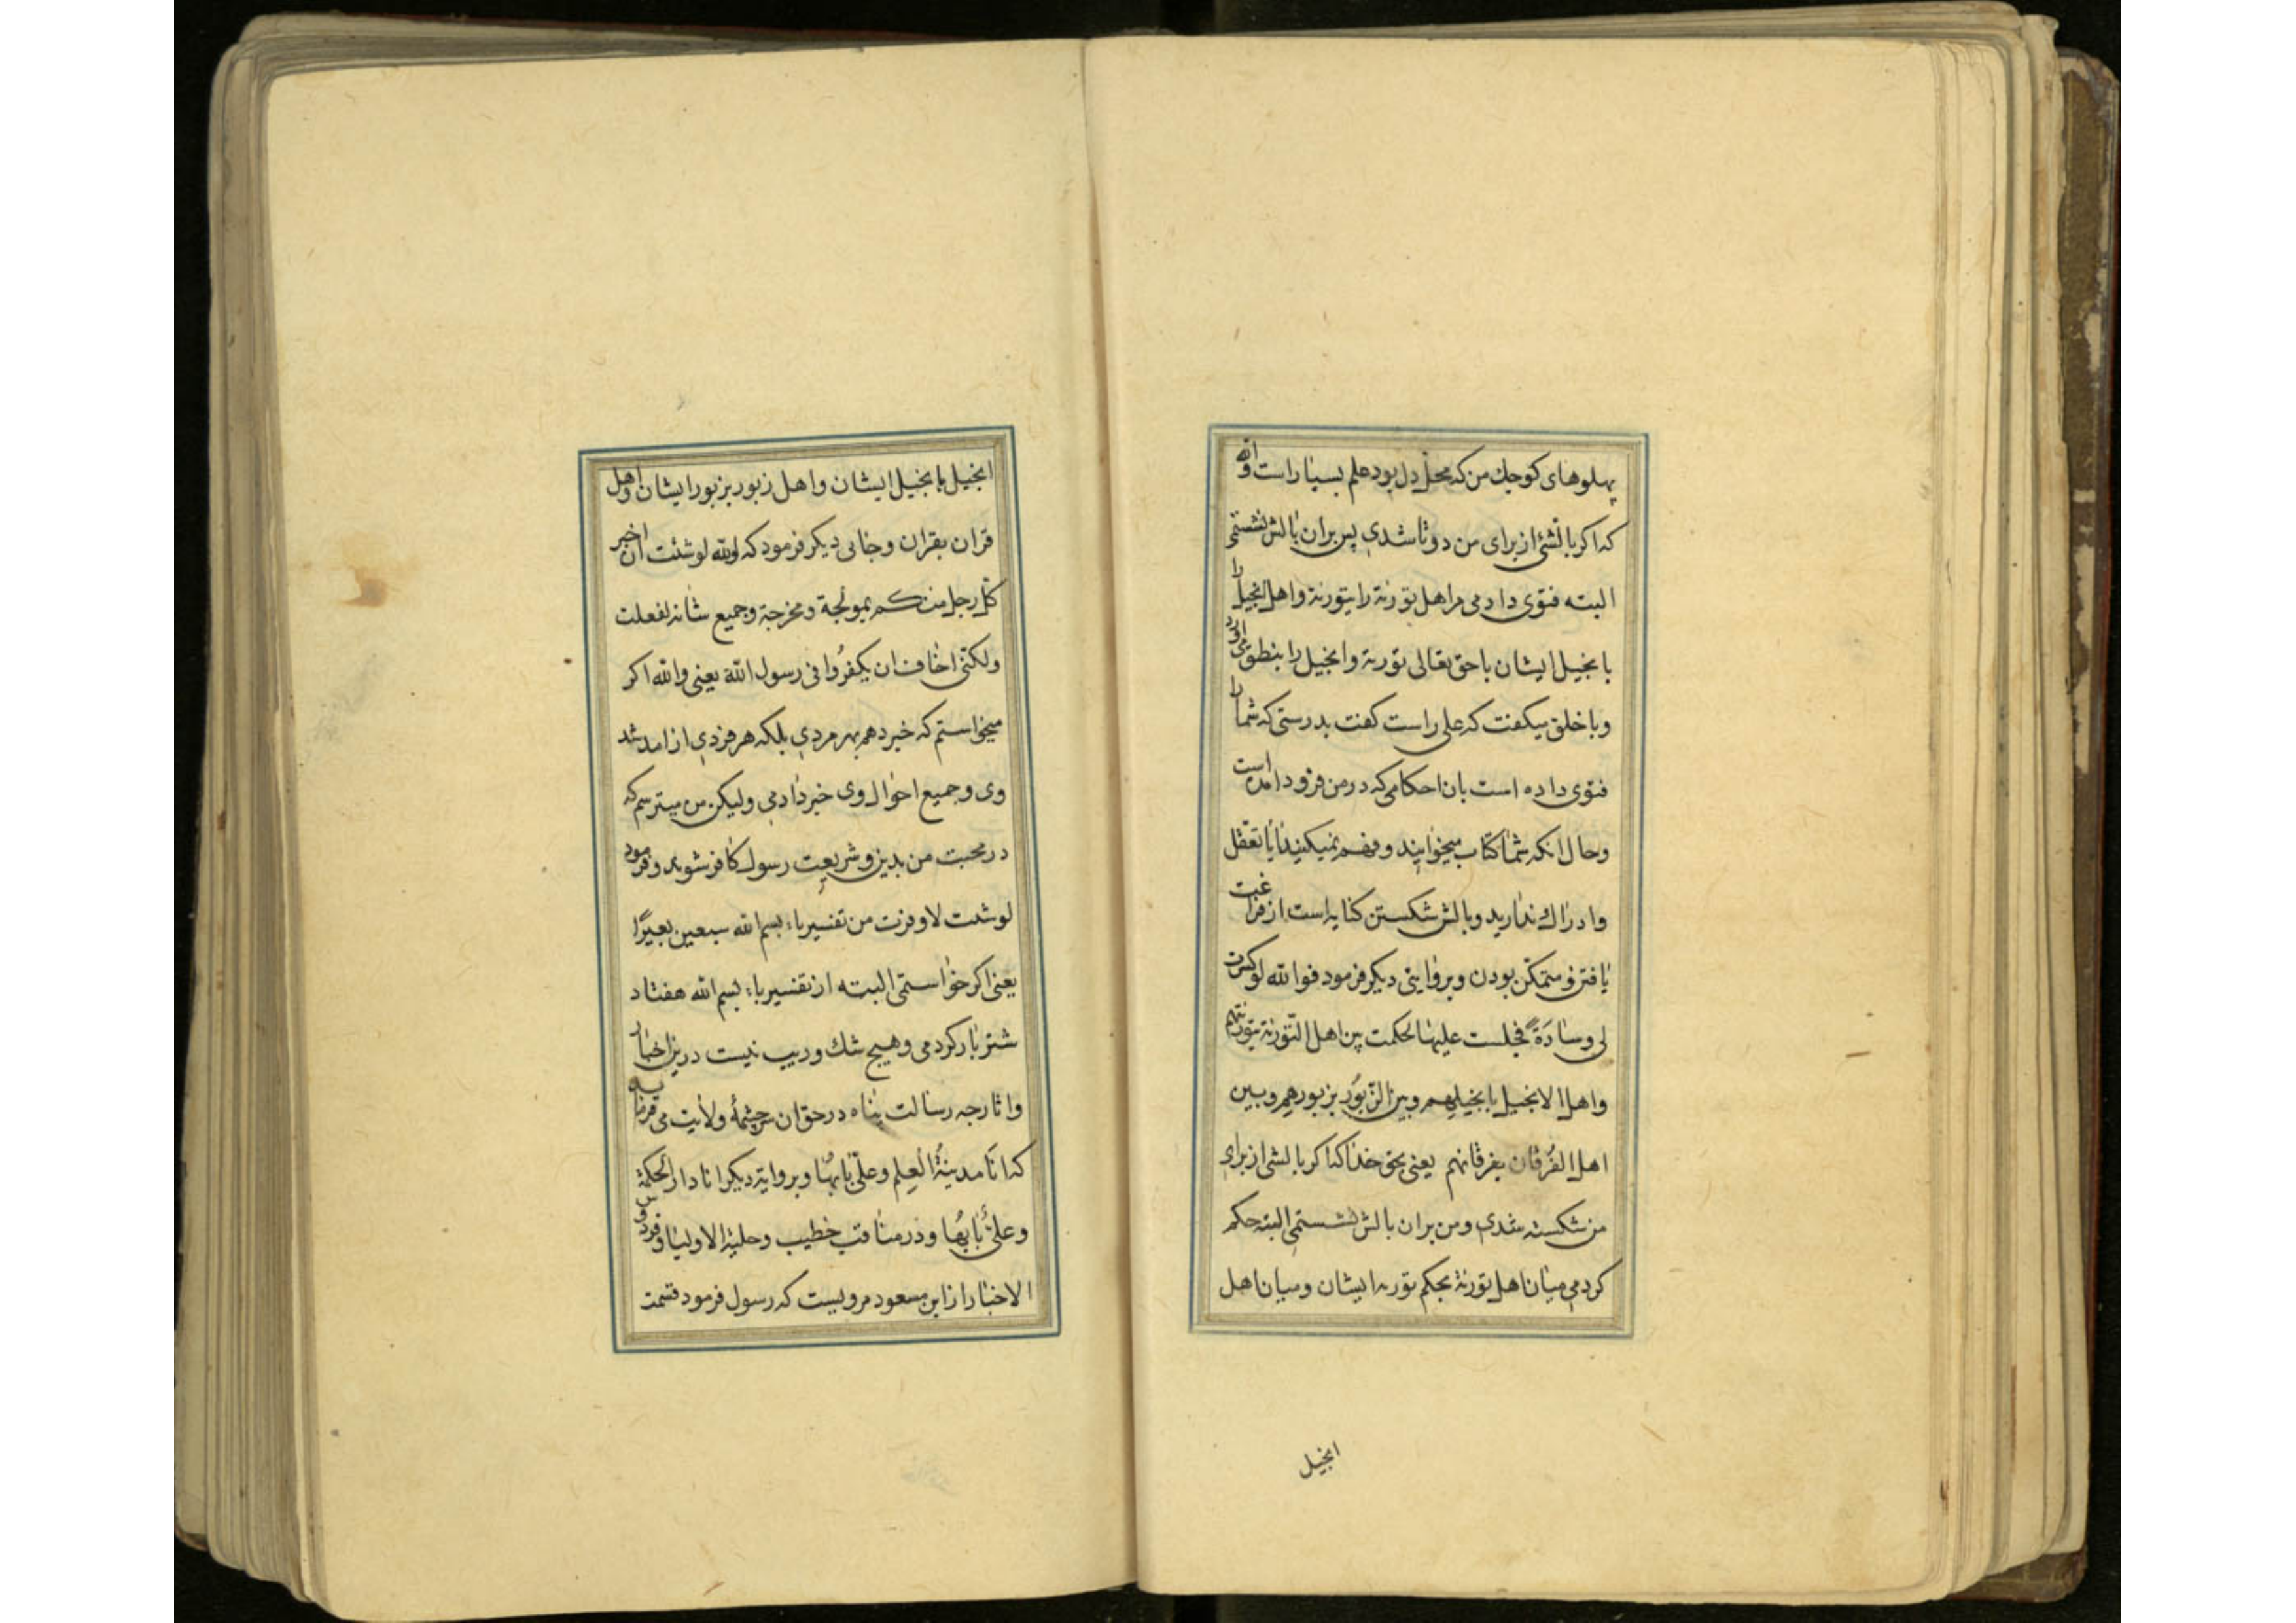 پهلوهای کوچك من که محل دل بود علم بسیار است والله
که اکر بالشی از برای من دوتا شدی پس بران بالش نشستمی
البته فتوی دادمی مر اهل تورية را بتورية و اهل انجیل را
بانجیل ایشان تا حق تعالی تورية و انجیل را بنطق
و با خلق میکفت که علی راست کفت بدرستی که شما را
فتوی داده است بان احکامی که در من فرود امده است
و حال انکه شما کتاب میخوانید و فهم نمیکنید ایا تعقل
و ادراك ندارید و بالش شکستن کنایه است از فراغت
یافتن و متمکن بودن و بروایتی دیکر فرمود فوالله لو کسرت
لی وسادَةً فجلست علیها لحکمت بین اهل التّورية بتوریتهم
و اهل الانجیل بانجیلهم و بین الزّبوُر بزبورهم و بین
اهل الفُرقان بفرقانهم یعنی بحق خدا که اکر بالشی از برای
من شکسته شدی و من بران بالش نشستمی البته حکم
کردمی میان اهل تورية بحکم توریه ایشان و میان اهل
انجیل
انجیل بانجیل ایشان و اهل زبور بزبور ایشان و اهل
قران بقران و جایی دیکر فرمود که والله لو شئت ان اخبر
کلّ رجل منکم بمولجة و مخرجة و جمیع شانه لفعلت
و لکنّی اخاف ان یکفرُوا فی رسول الله یعنی والله اکر
میخواستم که خبر دهم بهر مردی بلکه هر فردی از امد شد
وی و جمیع احوال وی خبر دادمی ولیکن من میترسم که
در محبت من بدین و شریعت رسول کافر شوید و فرمود
لو شئت لاوقرت من تفسیر باء بسم الله سبعین بعیرًا
یعنی اکر خواستمی البته از تفسیر باء بسم الله هفتاد
شتر بار کردمی و هیچ شك و ریب نیست درین اخبار
و اثار چه رسالت پناه در حق ان سرچشمهٔ ولایت می فرماید
که انَا مدینةُ العِلم و علیٌّ بابُها و بروایة دیکر انا دار الحکمة
و علیٌّ بابُها و در مناقب خطیب و حلیة الاولیا و فردوس
الاخبار از ابن مسعود مرویست که رسول فرمود قسمت